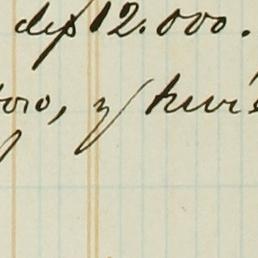 de $12.000.
oro, y tuvi